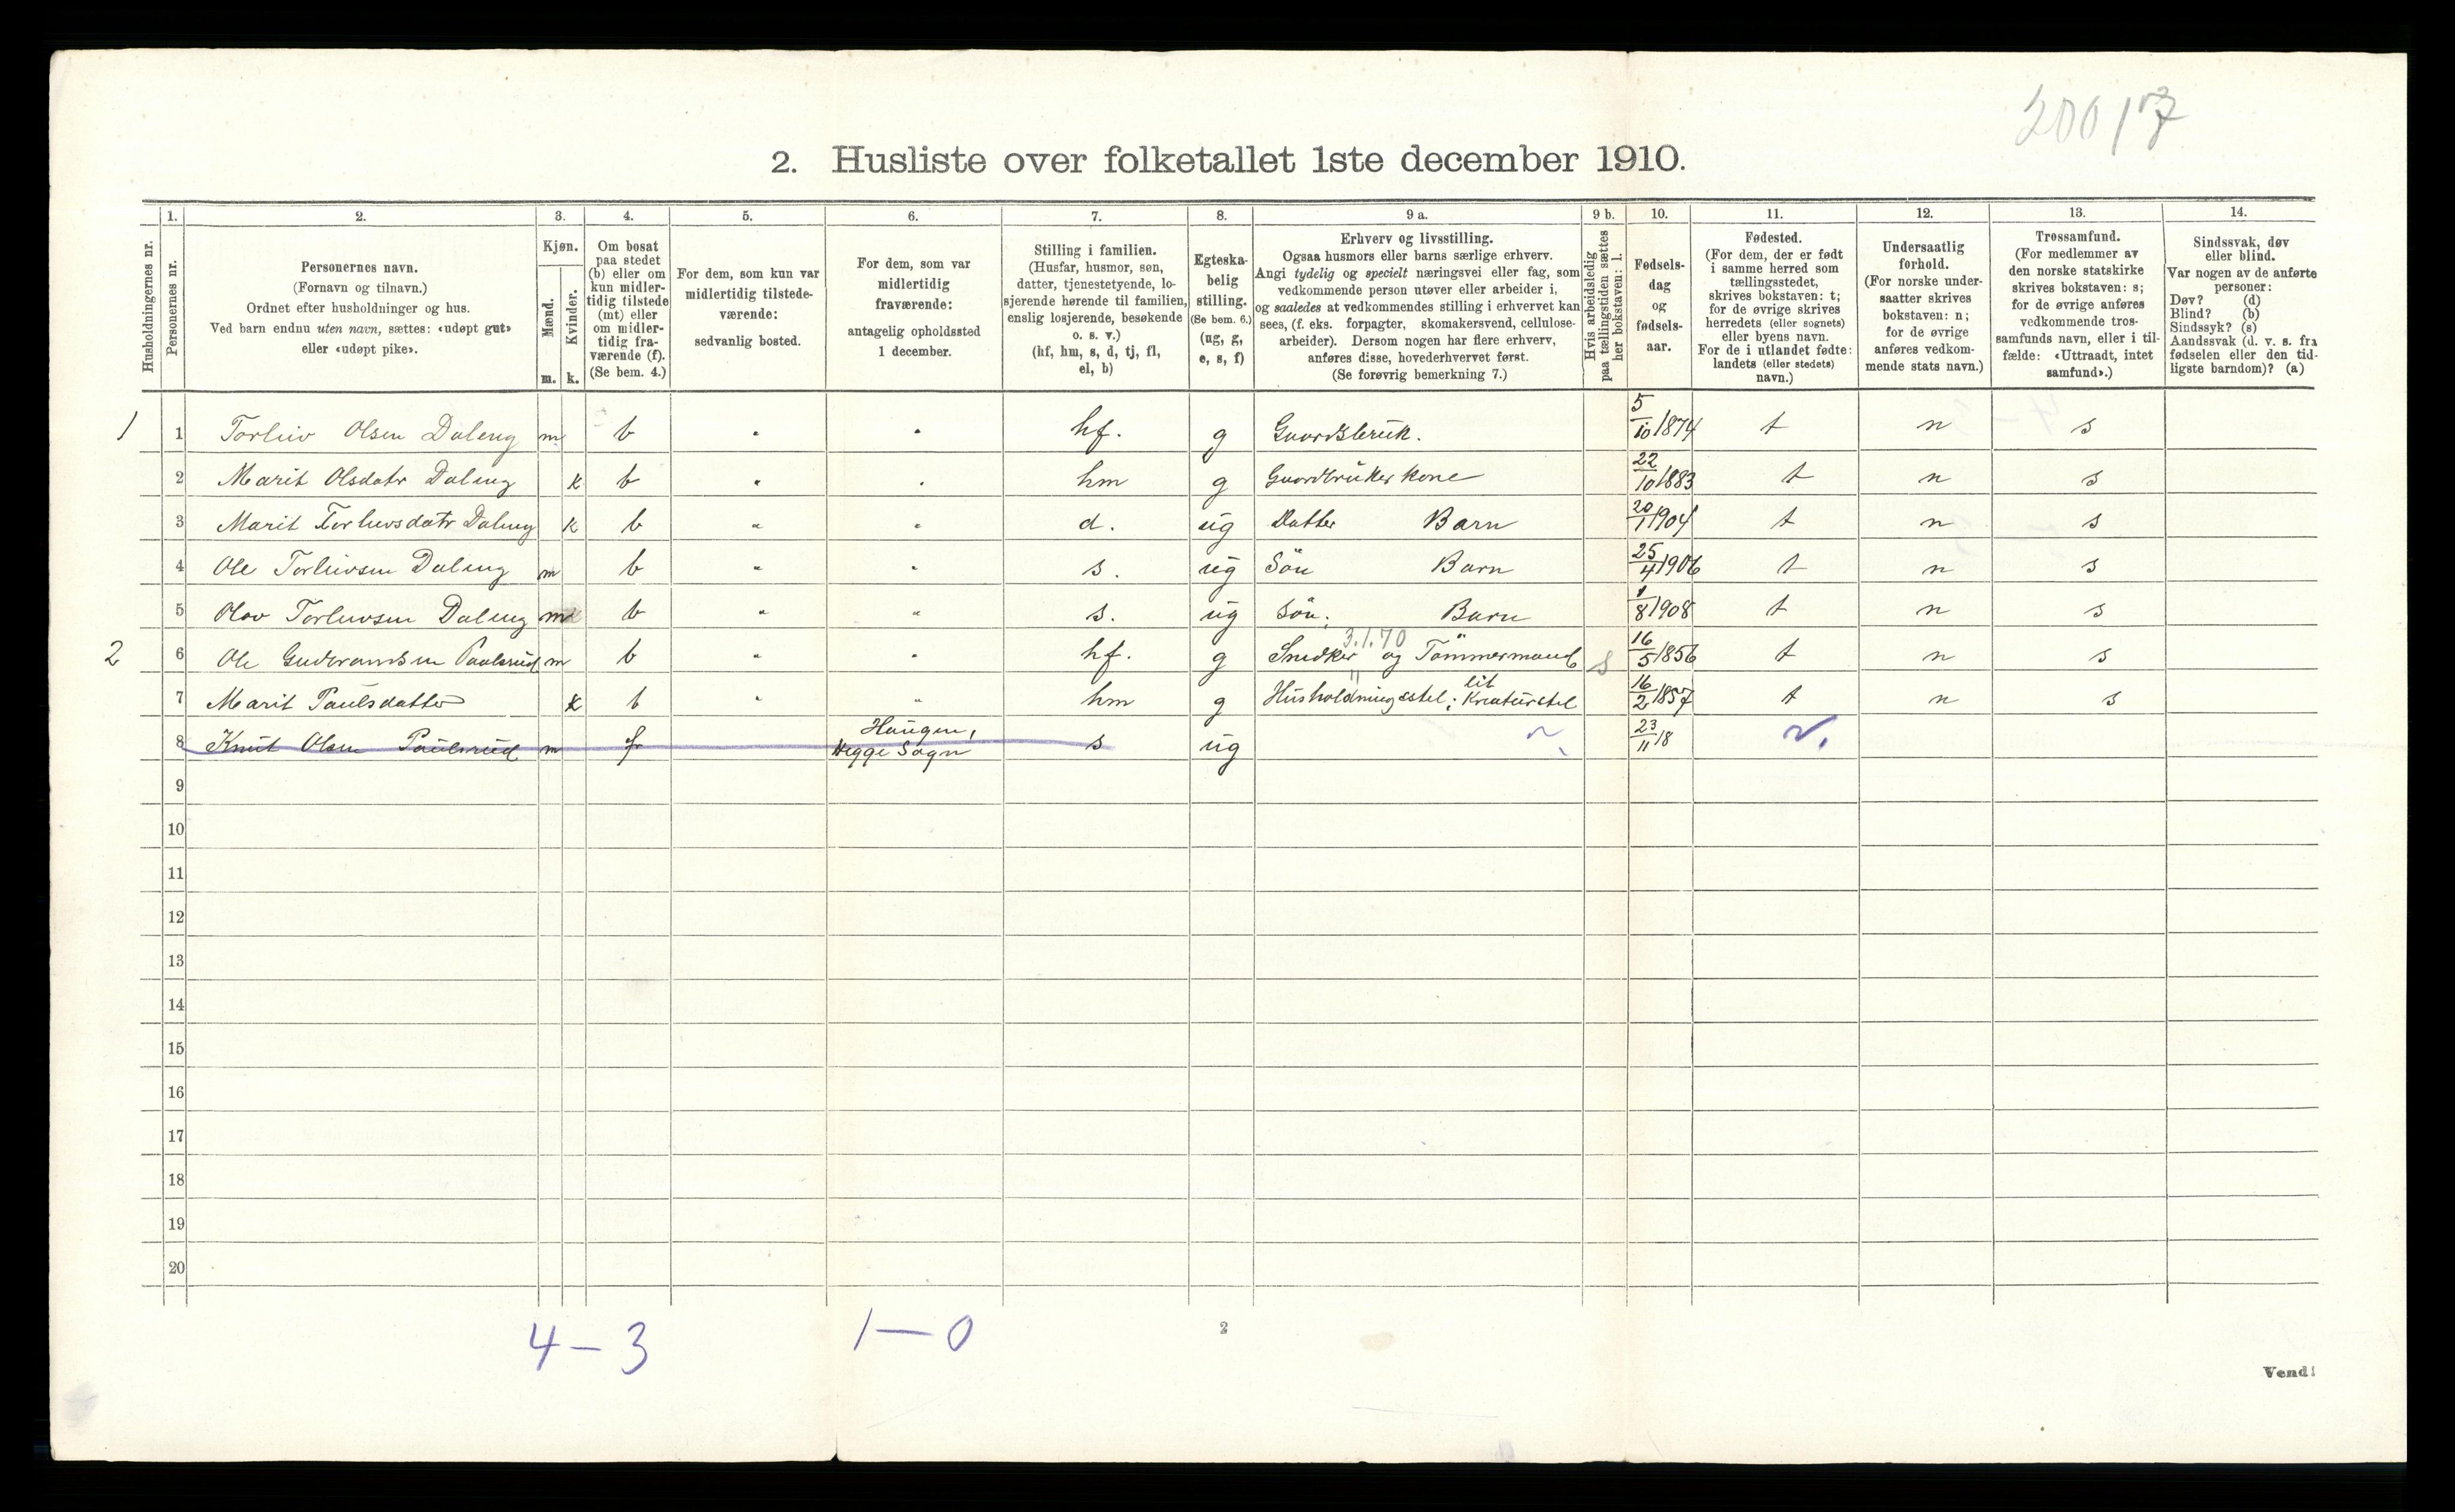 20017
2. Husliste over folketallet 1ste december 1910.
Husholdningernes nr.
1.
Personernes nr.
2.
Personernes navn.
(Fornavn og tilnavn.)
Ordnet efter husholdninger og hus.
Ved barn endnu uten navn, sættes: «udøpt gut»
eller «udøpt pike».
3.
Kjøn.
Mænd.
m.
Kvinder.
k.
4.
Om bosat
paa stedet
(b) eller om
kun midler-
tidig tilstede
(mt) eller
om midler-
tidig fra-
værende (f).
(Se bem. 4.)
5.
For dem, som kun var
midlertidig tilstede-
værende:
sedvanlig bosted.
6.
For dem, som var
midlertidig
fraværende:
antagelig opholdssted
1 december.
7.
Stilling i familien.
(Husfar, husmor, søn,
datter, tjenestetyende, lo-
sjerende hørende til familien,
enslig losjerende, besøkende
o. s. v.)
(hf, hm, s, d, tj, fl,
el, b)
8.
Egteska-
belig
stilling.
(Se bem. 6.)
(ug, g,
e, s, f)
9 a.
Erhverv og livsstilling.
Ogsaa husmors eller barns særlige erhverv.
Angi tydelig og specielt næringsvei eller fag, som
vedkommende person utøver eller arbeider i,
og saaledes at vedkommendes stilling i erhvervet kan
sees, (f. eks. forpagter, skomakersvend, cellulose-
arbeider). Dersom nogen har flere erhverv,
anføres disse, hovederhvervet først.
(Se forøvrig bemerkning 7.)
9 b.
Hvis arbeidsledig
paa tællingstiden sættes
her bokstaven: l.
10.
Fødsels-
dag
og
fødsels-
aar.
11.
Fødested.
(For dem, der er født
i samme herred som
tællingsstedet,
skrives bokstaven: t;
for de øvrige skrives
herredets (eller sognets)
eller byens navn.
For de i utlandet fødte:
landets (eller stedets)
navn.)
12.
Undersaatlig
forhold.
(For norske under-
saatter skrives
bokstaven: n;
for de øvrige
anføres vedkom-
mende stats navn.)
13.
Trossamfund.
(For medlemmer av
den norske statskirke
skrives bokstaven: s;
for de øvrige anføres
vedkommende tros-
samfunds navn, eller i til-
fælde: «Uttraadt, intet
samfund».)
14.
Sindssvak, døv
eller blind.
Var nogen av de anførte
personer:
Døv? (d)
Blind? (b)
Sindssyk? (s)
Aandssvak (d. v. s. fra
fødselen eller den tid-
ligste barndom)? (a)
1 1 Torleiv Olsen Daleng m b " " hf. g Gaardsbruk. 5/10 1874 t n s
2 Marit Olsdatr Daleng k b " " hm g Gaardbruker kone 22/10 1883 t n s
3 Marit Torleivsdatr Daleng k b " " d. ug Datter Barn 20/1 1904 t n s
4 Ole Torleivsen Daleng m b " " s. ug Sön Barn 25/4 1906 t n s
5 Olav Torleivsen Daleng m b " " s. ug Sön. Barn 1/8 1908 t n s
3.1.70
2 6 Ole Gudbrandsen Paulsrud m b " " hf. g Snedker og Tömmermand s 16/5 1856 t n s
7 Marit Paulsdatter k b " " hm g Husholdningsstel; lit Kreaturstel 16/2 1857 t n s
8 Knut Olsen Paulsrud m f Haugen, Hegge Sogn s ug 23/11 18
9
10
11
12
13
14
15
16
17
18
19
20
4 — 3
1 — 0
2
Vend!